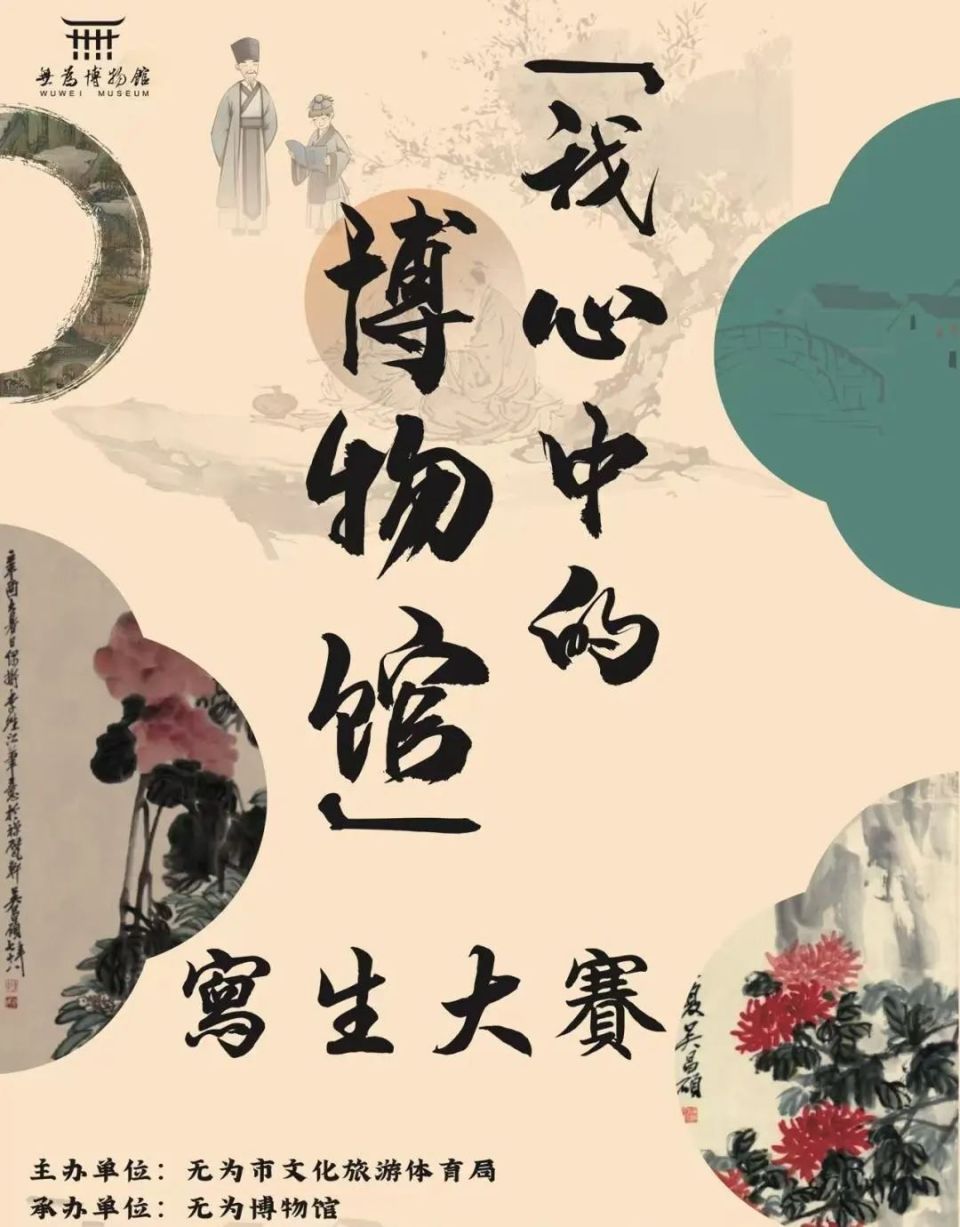 無為博物館
WUWEI MUSEUM
「我心中的
博物馆」
寫生大賽
吴昌碩
主办单位：无为市文化旅游体育局
承办单位：无为博物馆